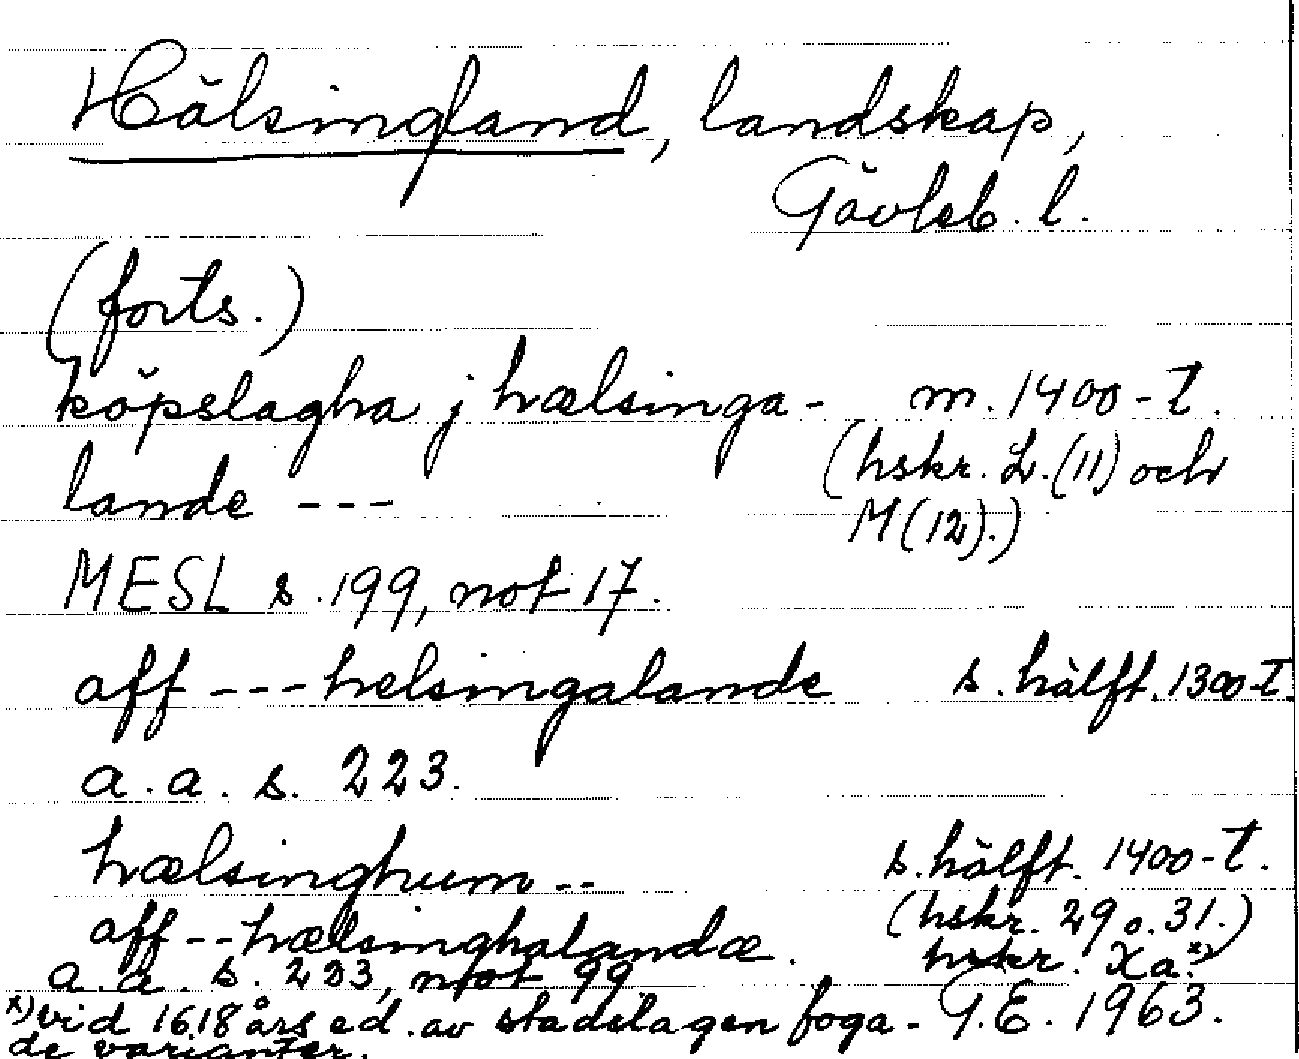 Hälsingland, landskap,
Gävleb. l.
(forts.)
köpslagha j hælsinga- m. 1400-t.
lande --- (hskr. L.(11) och
M(12).)
MESL s. 199, not 17.
aff --- helsingalande s. hälft. 1300-t.
a.a. s. 223.
hælsinghum -- s. hälft. 1400-t.
(hskr. 29 o. 31.)
aff -- hælsinghalandæ. hskr. Xa.x)
a.a. s. 233, not 99
x) vid 1618 års ed. av stadslagen foga- G.E. 1963.
de varianter.